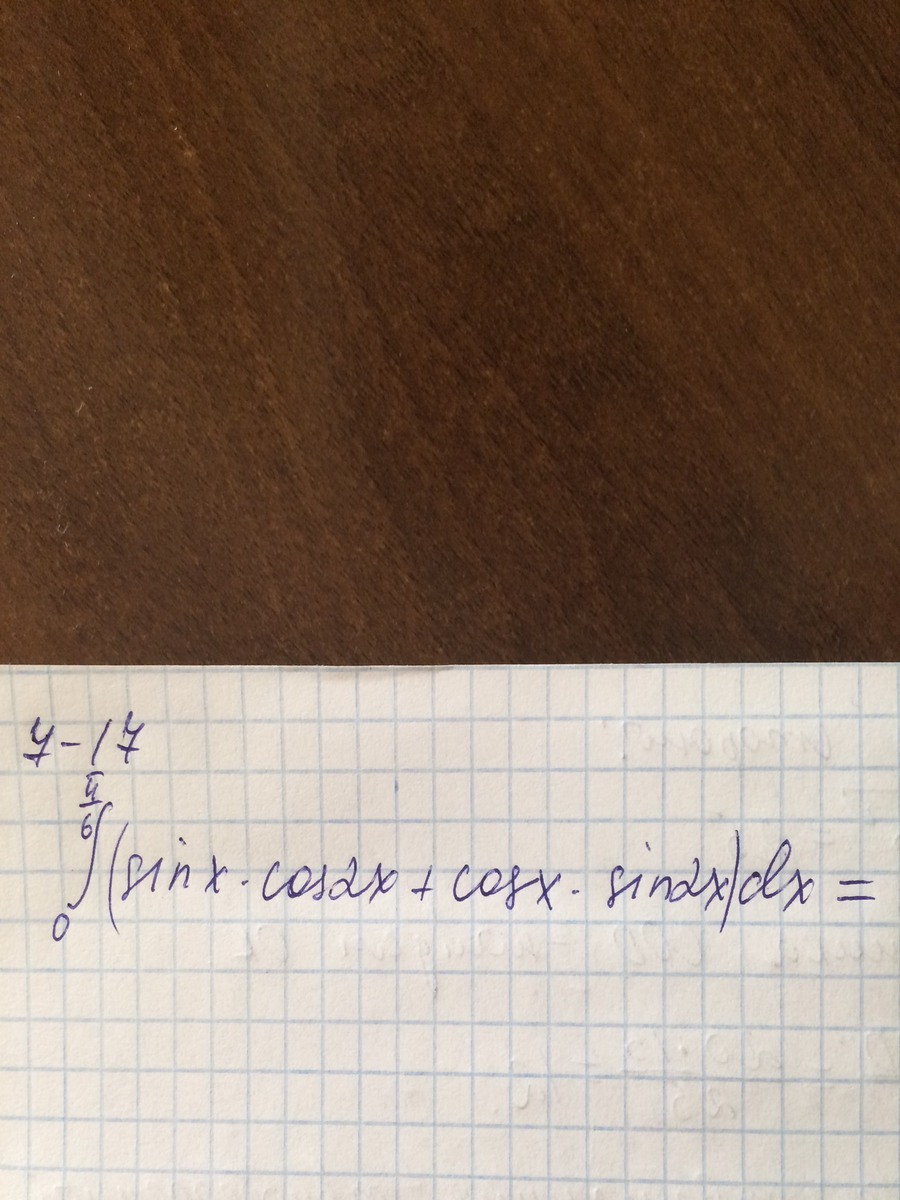 7-17
π/6 ∫ 0 (sin x · cos2x + cosx · sin2x)dx =